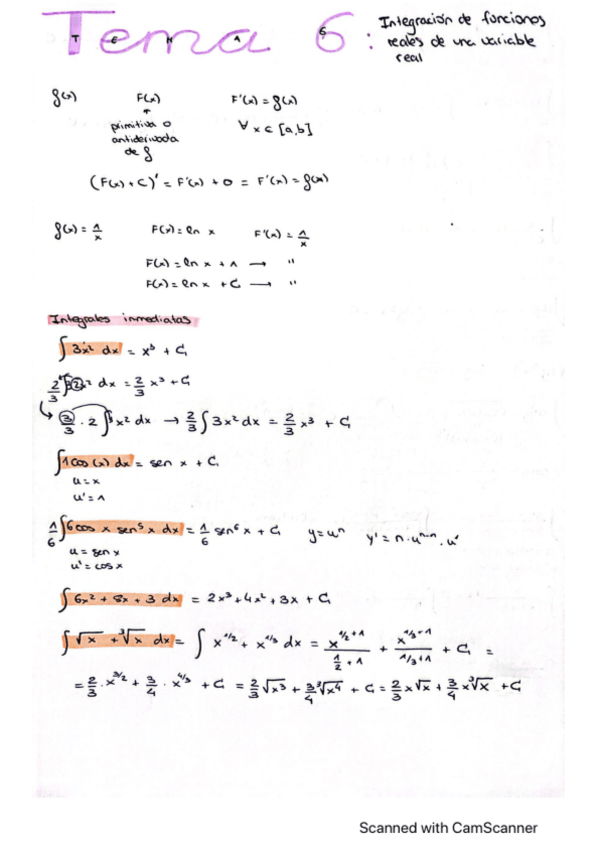 Tema 6: Integración de funciones
reales de una variable
real
f(x) F(x) F'(x) = f(x)
primitiva o ∀ x ∈ [a,b]
antiderivada
de f
(F(x) + C)' = F'(x) + 0 = F'(x) = f(x)
f(x) = 1/x F(x) = ln x F'(x) = 1/x
F(x) = ln x + 1 → "
F(x) = ln x + C → "
Integrales inmediatas
∫ 3x² dx = x³ + C
∫ 2x² dx = 2/3 x³ + C
3/3 · 2 ∫ x² dx → 2/3 ∫ 3x² dx = 2/3 x³ + C
∫ 1 cos(x) dx = sen x + C
u = x
u' = 1
1/6 ∫ 6 cos x sen⁵ x dx = 1/6 sen⁶ x + C y = uⁿ y' = n · uⁿ⁻¹ · u'
u = sen x
u' = cos x
∫ 6x² + 8x + 3 dx = 2x³ + 4x² + 3x + C
∫ √x + ∛x dx = ∫ x^1/2 + x^1/3 dx = x^(1/2+1)/(1/2+1) + x^(1/3+1)/(1/3+1) + C =
= 2/3 · x^3/2 + 3/4 · x^4/3 + C = 2/3 √x³ + 3/4 ∛x⁴ + C = 2/3 x√x + 3/4 x∛x + C
Scanned with CamScanner